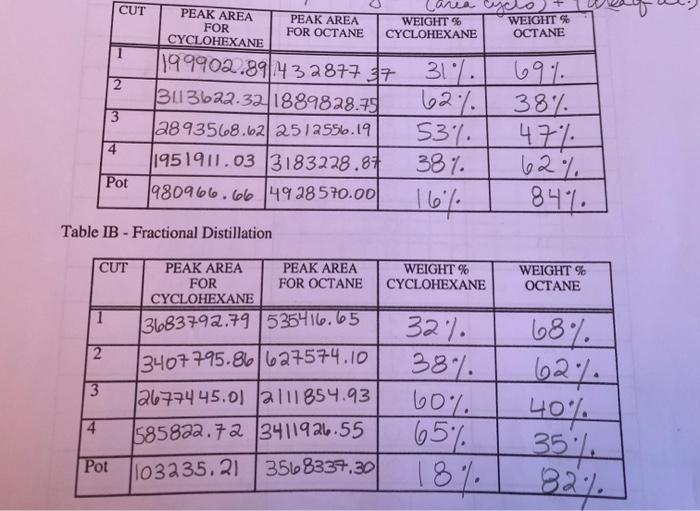 (area cyclo) + (area of oct.)
CUT PEAK AREA FOR CYCLOHEXANE PEAK AREA FOR OCTANE WEIGHT % CYCLOHEXANE WEIGHT % OCTANE
1 199902.89 432877.37 31% 69%
2 3113622.32 1889828.75 62% 38%
3 2893568.62 2512556.19 53% 47%
4 1951911.03 3183228.87 38% 62%
Pot 980966.66 4928570.00 16% 84%
Table IB - Fractional Distillation
CUT PEAK AREA FOR CYCLOHEXANE PEAK AREA FOR OCTANE WEIGHT % CYCLOHEXANE WEIGHT % OCTANE
1 3683792.79 535416.65 32% 68%
2 3407795.86 627574.10 38% 62%
3 2677445.01 2111854.93 60% 40%
4 585822.72 3411926.55 65% 35%
Pot 103235.21 3568337.30 18% 82%